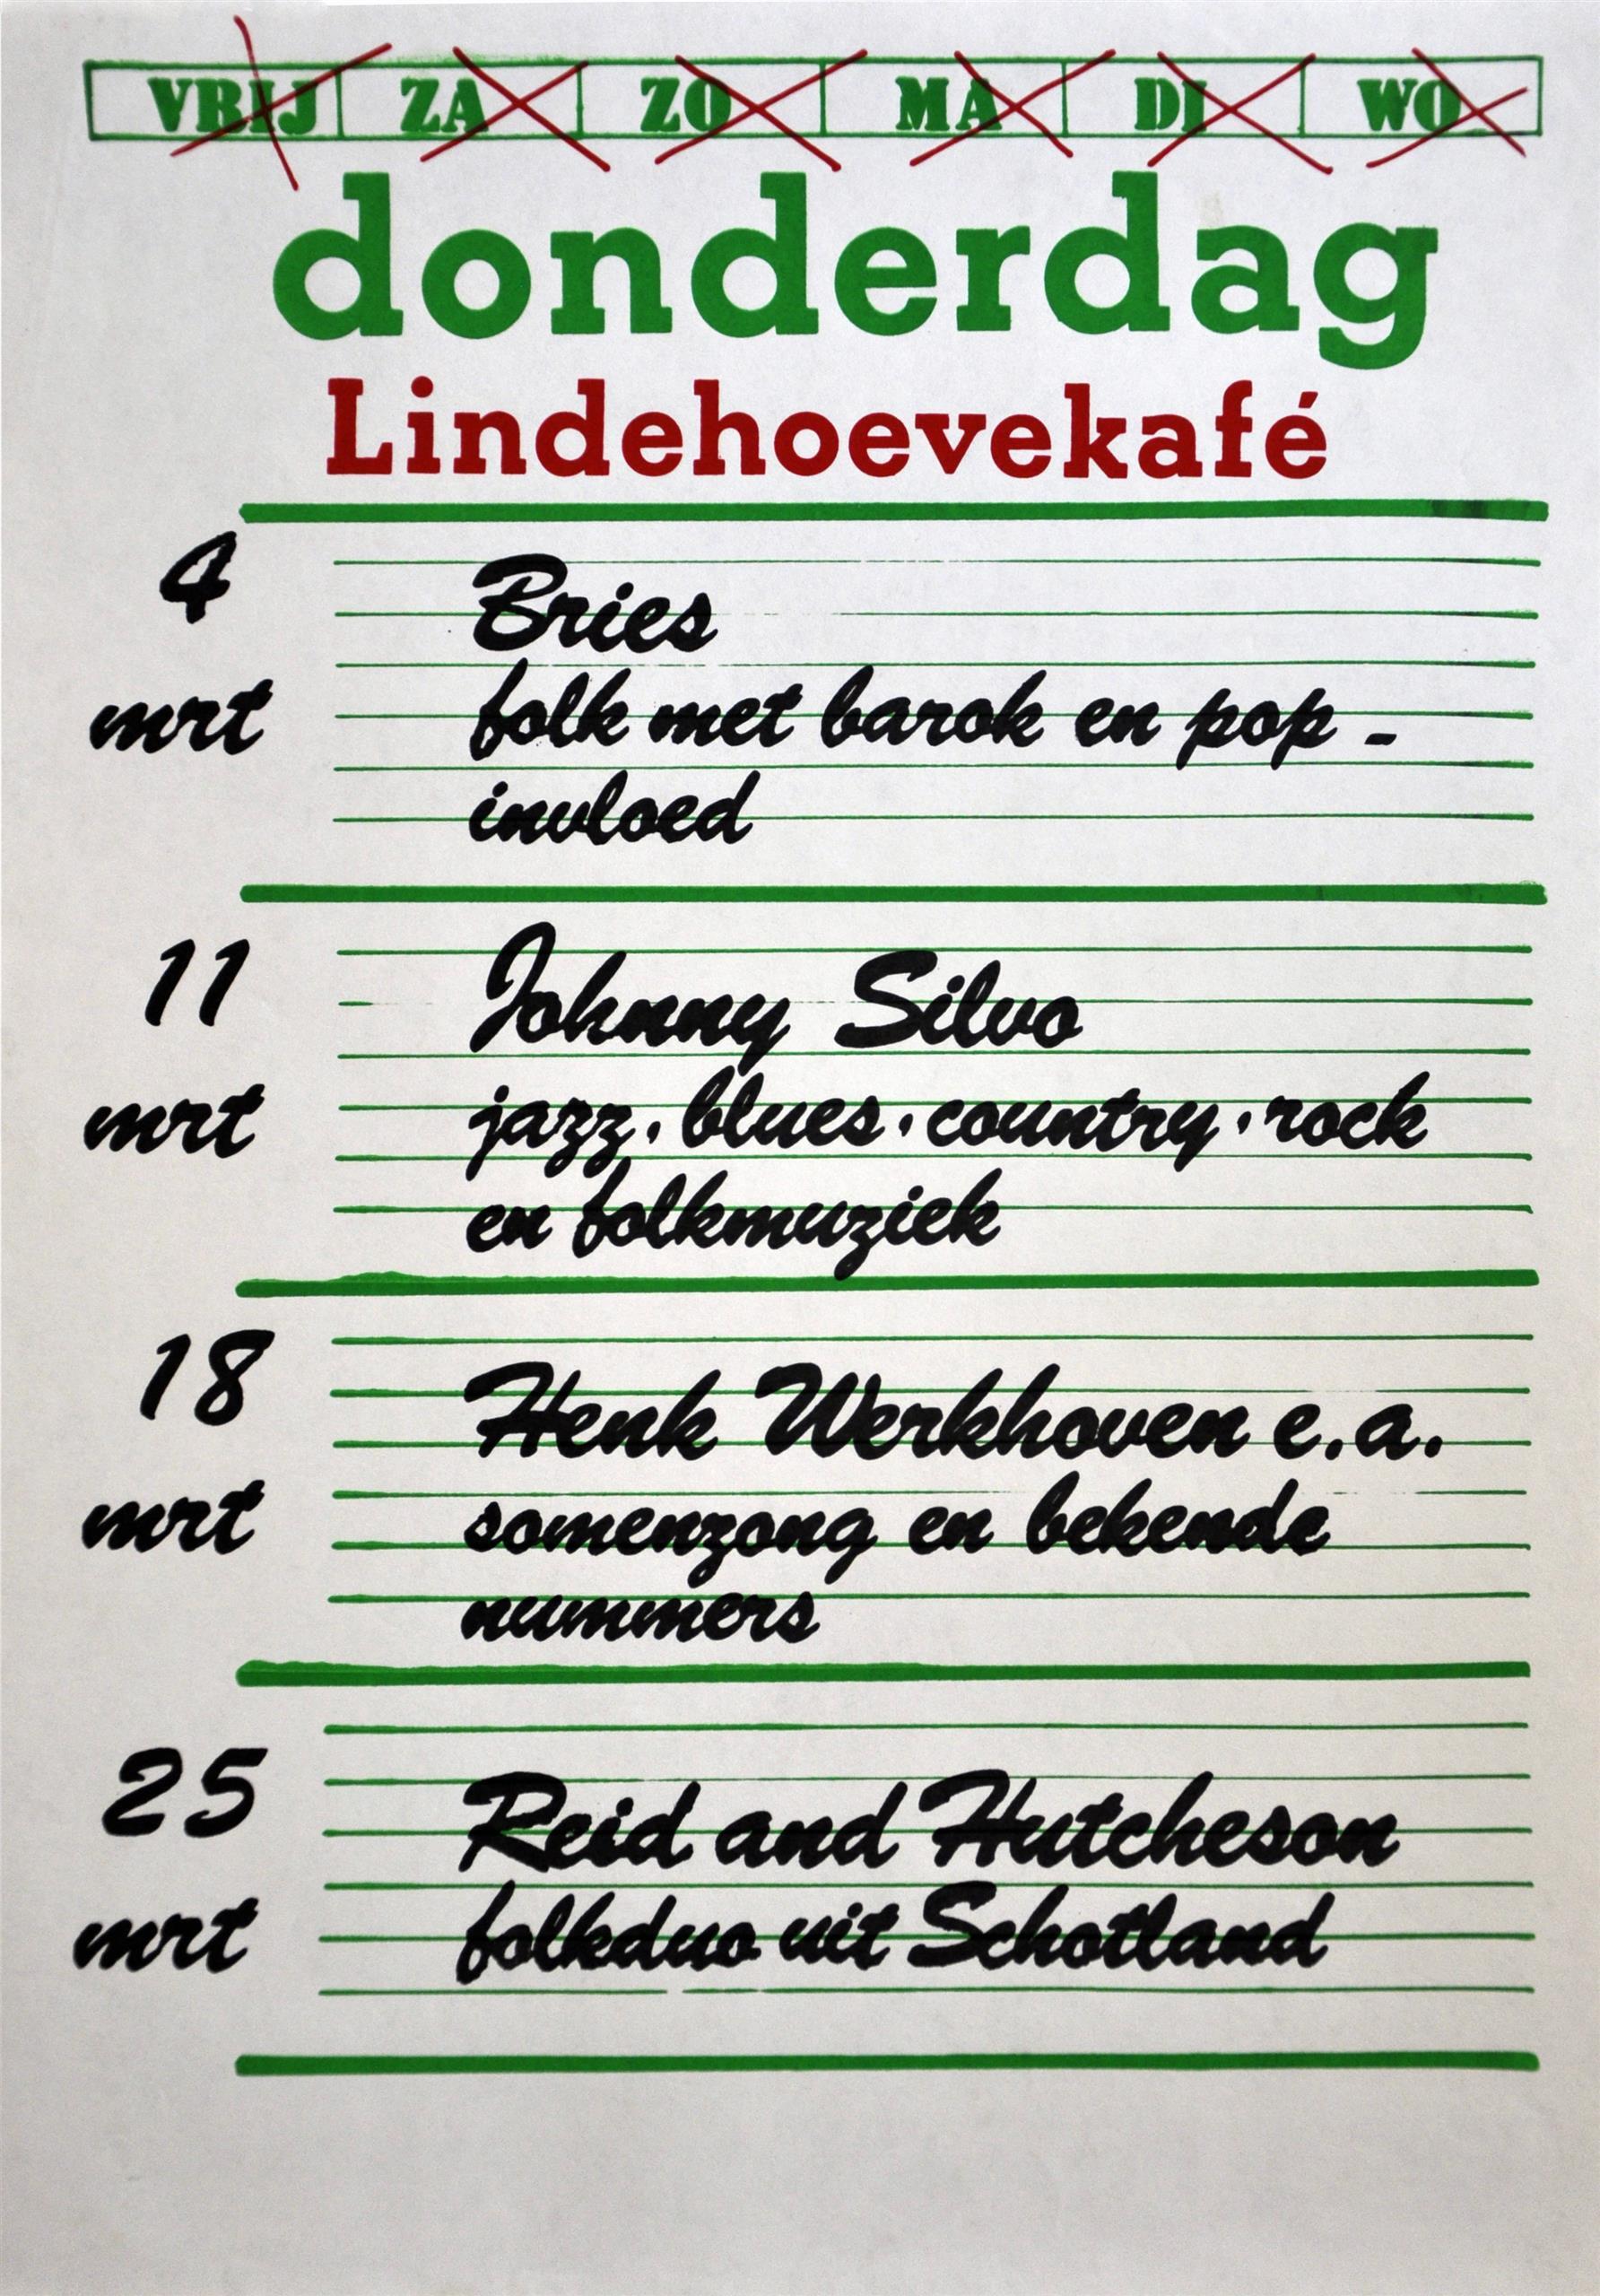 VRIJ ZA ZO MA DI WO
donderdag
Lindehoevekafé
4 mrt
Bries
folk met barok en pop-
invloed
11 mrt
Johnny Silvo
jazz · blues · country · rock
en folkmuziek
18 mrt
Henk Werkhoven e.a.
somenzong en bekende
nummers
25 mrt
Reid and Hutcheson
folkduo uit Schotland